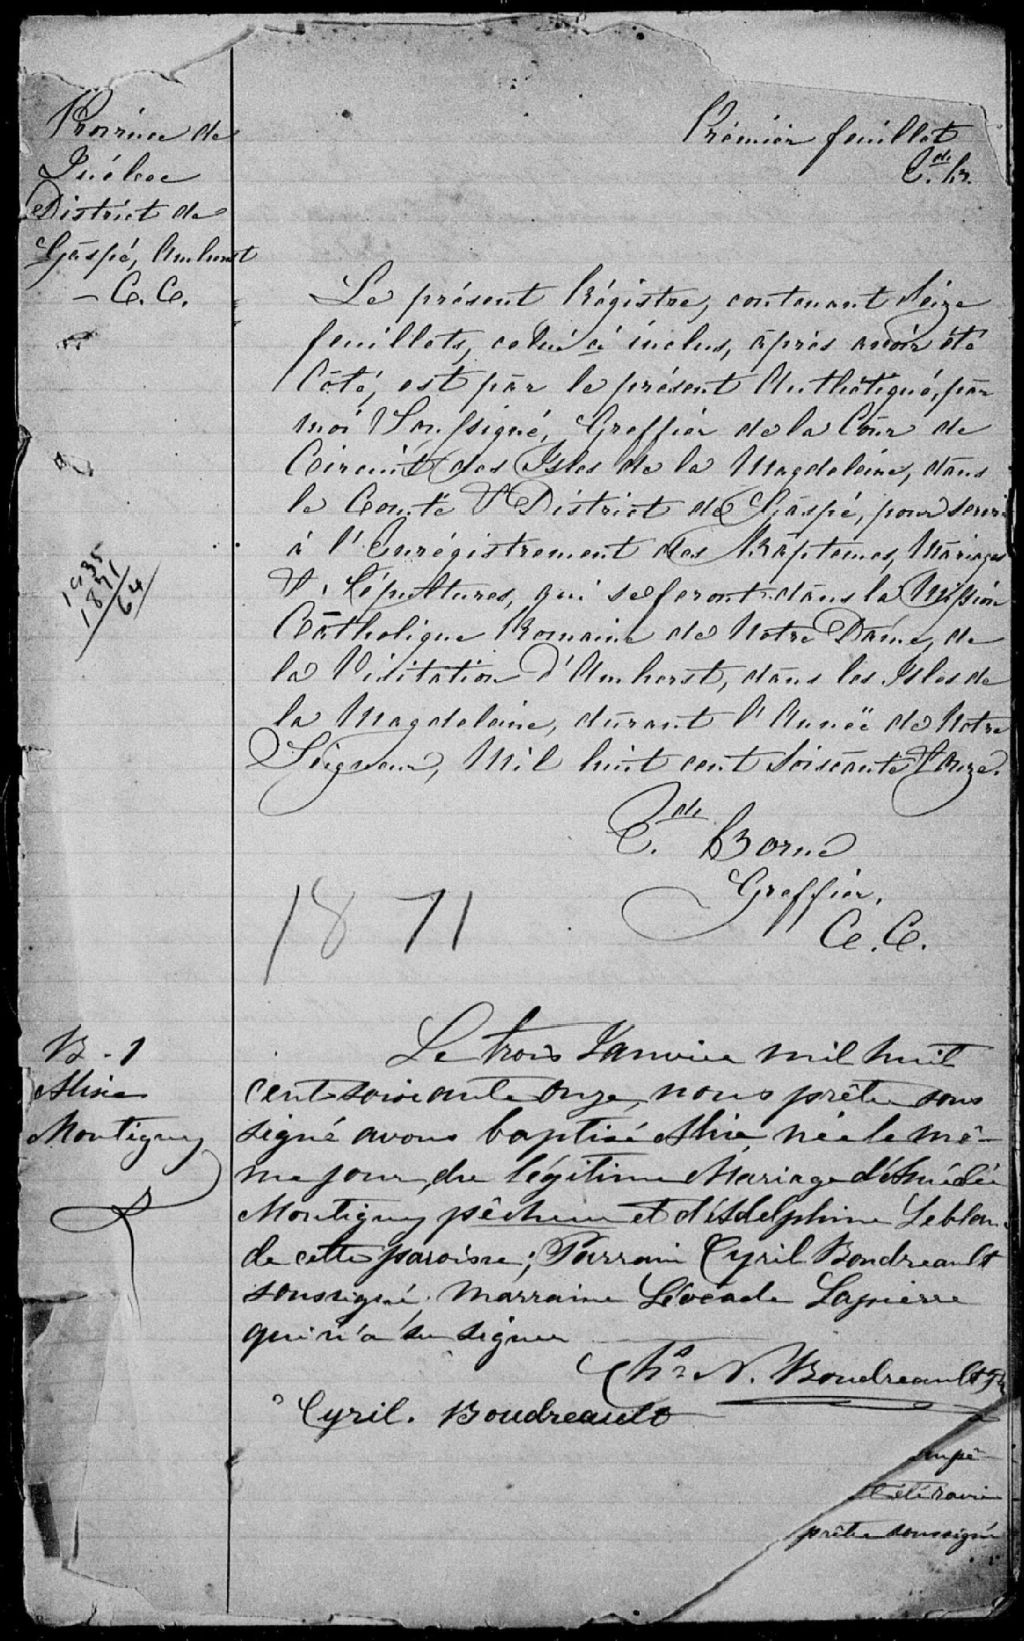 Province de
Québec
District de
Gaspé, Amherst
— C. C.
Prémiér feuillet
E.de B.
Le présent Régistre, contenant Seize
feuillets, celui ci inclus, après avoir été
Côté, est par le présent Authentiqué, par
moi Soussigné, Greffiér de la Cour de
Circuit des Isles de la Magdeleine, dans
le Comté & District de Gáspé, pour servir
à l'Enrégistrement des Baptemes, Mariages
& Sépultures, qui se feront dans la Mission
Catholique Romaine de Notre Dame, de
la Visitation d'Amherst, dans les Isles de
la Magdeleine, durant l'Année de Notre
Seigneur, Mil huit cent Soixante & Onze.
E.de Borne
Greffiér,
C. C.
1935
1871
64
1871
B - 1
Alvie
Montigny
Le trois Janvier mil huit
cent soixante onze, nous prêtre sous
signé avons baptisé née le mê-
me jour, du légitime Mariage d'Amédée
Montigny pêcheur et d'Adelphine Leblanc
de cette paroisse; Parrain Cyril Boudreault
soussigné, marraine Léocade Lapierre
qui n'a su signer
Chs N. Boudreault Ptr
Cyril. Boudreault
prêtre soussigné